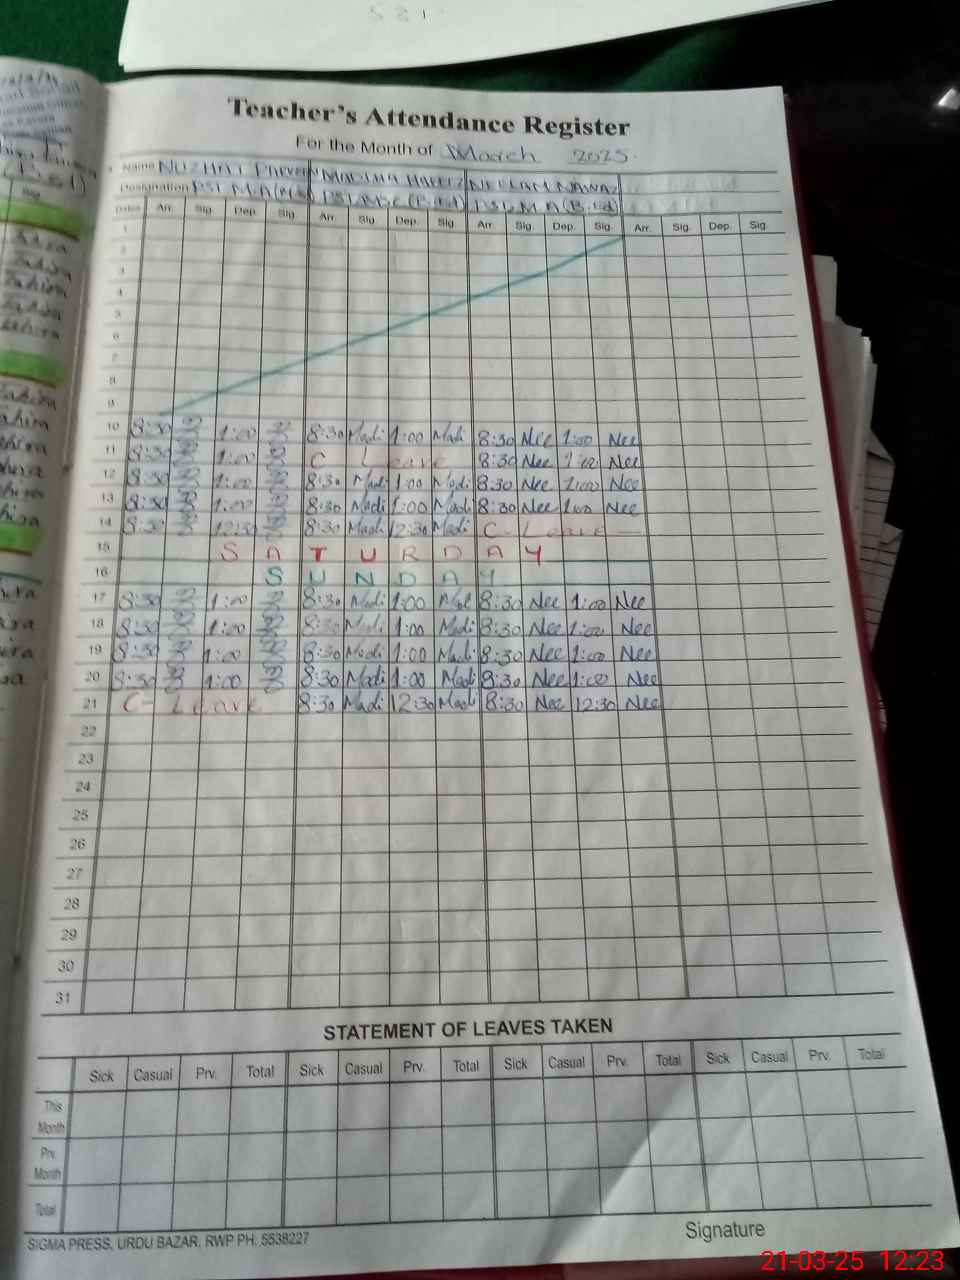 Teacher's Attendance Register
For the Month of March 2025.
Name NUZHAT PARVEEN MADIHA HAFEEZ NEELAM NAWAZ
Designation PST M.A (B.Ed) PST, M.A (B.Ed)
Dates Arr. Sig. Dep. Sig. Arr. Sig. Dep. Sig. Arr. Sig. Dep. Sig. Arr. Sig. Dep. Sig.
1
2
3
4
5
6
7
8
9
10 8:30 1:00 8:30 Madi 1:00 Madi 8:30 Nee 1:00 Nee
11 8:30 1:00 C Leave 8:30 Nee 1:00 Nee
12 8:30 1:00 8:30 Madi 1:00 Madi 8:30 Nee 1:00 Nee
13 8:30 1:00 8:30 Madi 1:00 Madi 8:30 Nee 1:00 Nee
14 8:30 12:30 8:30 Madi 12:30 Madi C- Leave
15 SATURDAY
16 SUNDAY
17 8:30 1:00 8:30 Madi 1:00 Madi 8:30 Nee 1:00 Nee
18 8:30 1:00 8:30 Madi 1:00 Madi 8:30 Nee 1:00 Nee
19 8:30 1:00 8:30 Madi 1:00 Madi 8:30 Nee 1:00 Nee
20 8:30 1:00 8:30 Madi 1:00 Madi 8:30 Nee 1:00 Nee
21 C- Leave 8:30 Madi 12:30 Madi 8:30 Nee 12:30 Nee
22
23
24
25
26
27
28
29
30
31
STATEMENT OF LEAVES TAKEN
Sick Casual Prv. Total Sick Casual Prv. Total Sick Casual Prv. Total Sick Casual Prv. Total
This Month
Prv. Month
Total
SIGMA PRESS, URDU BAZAR, RWP PH: 5538227
Signature
21-03-25 12:23